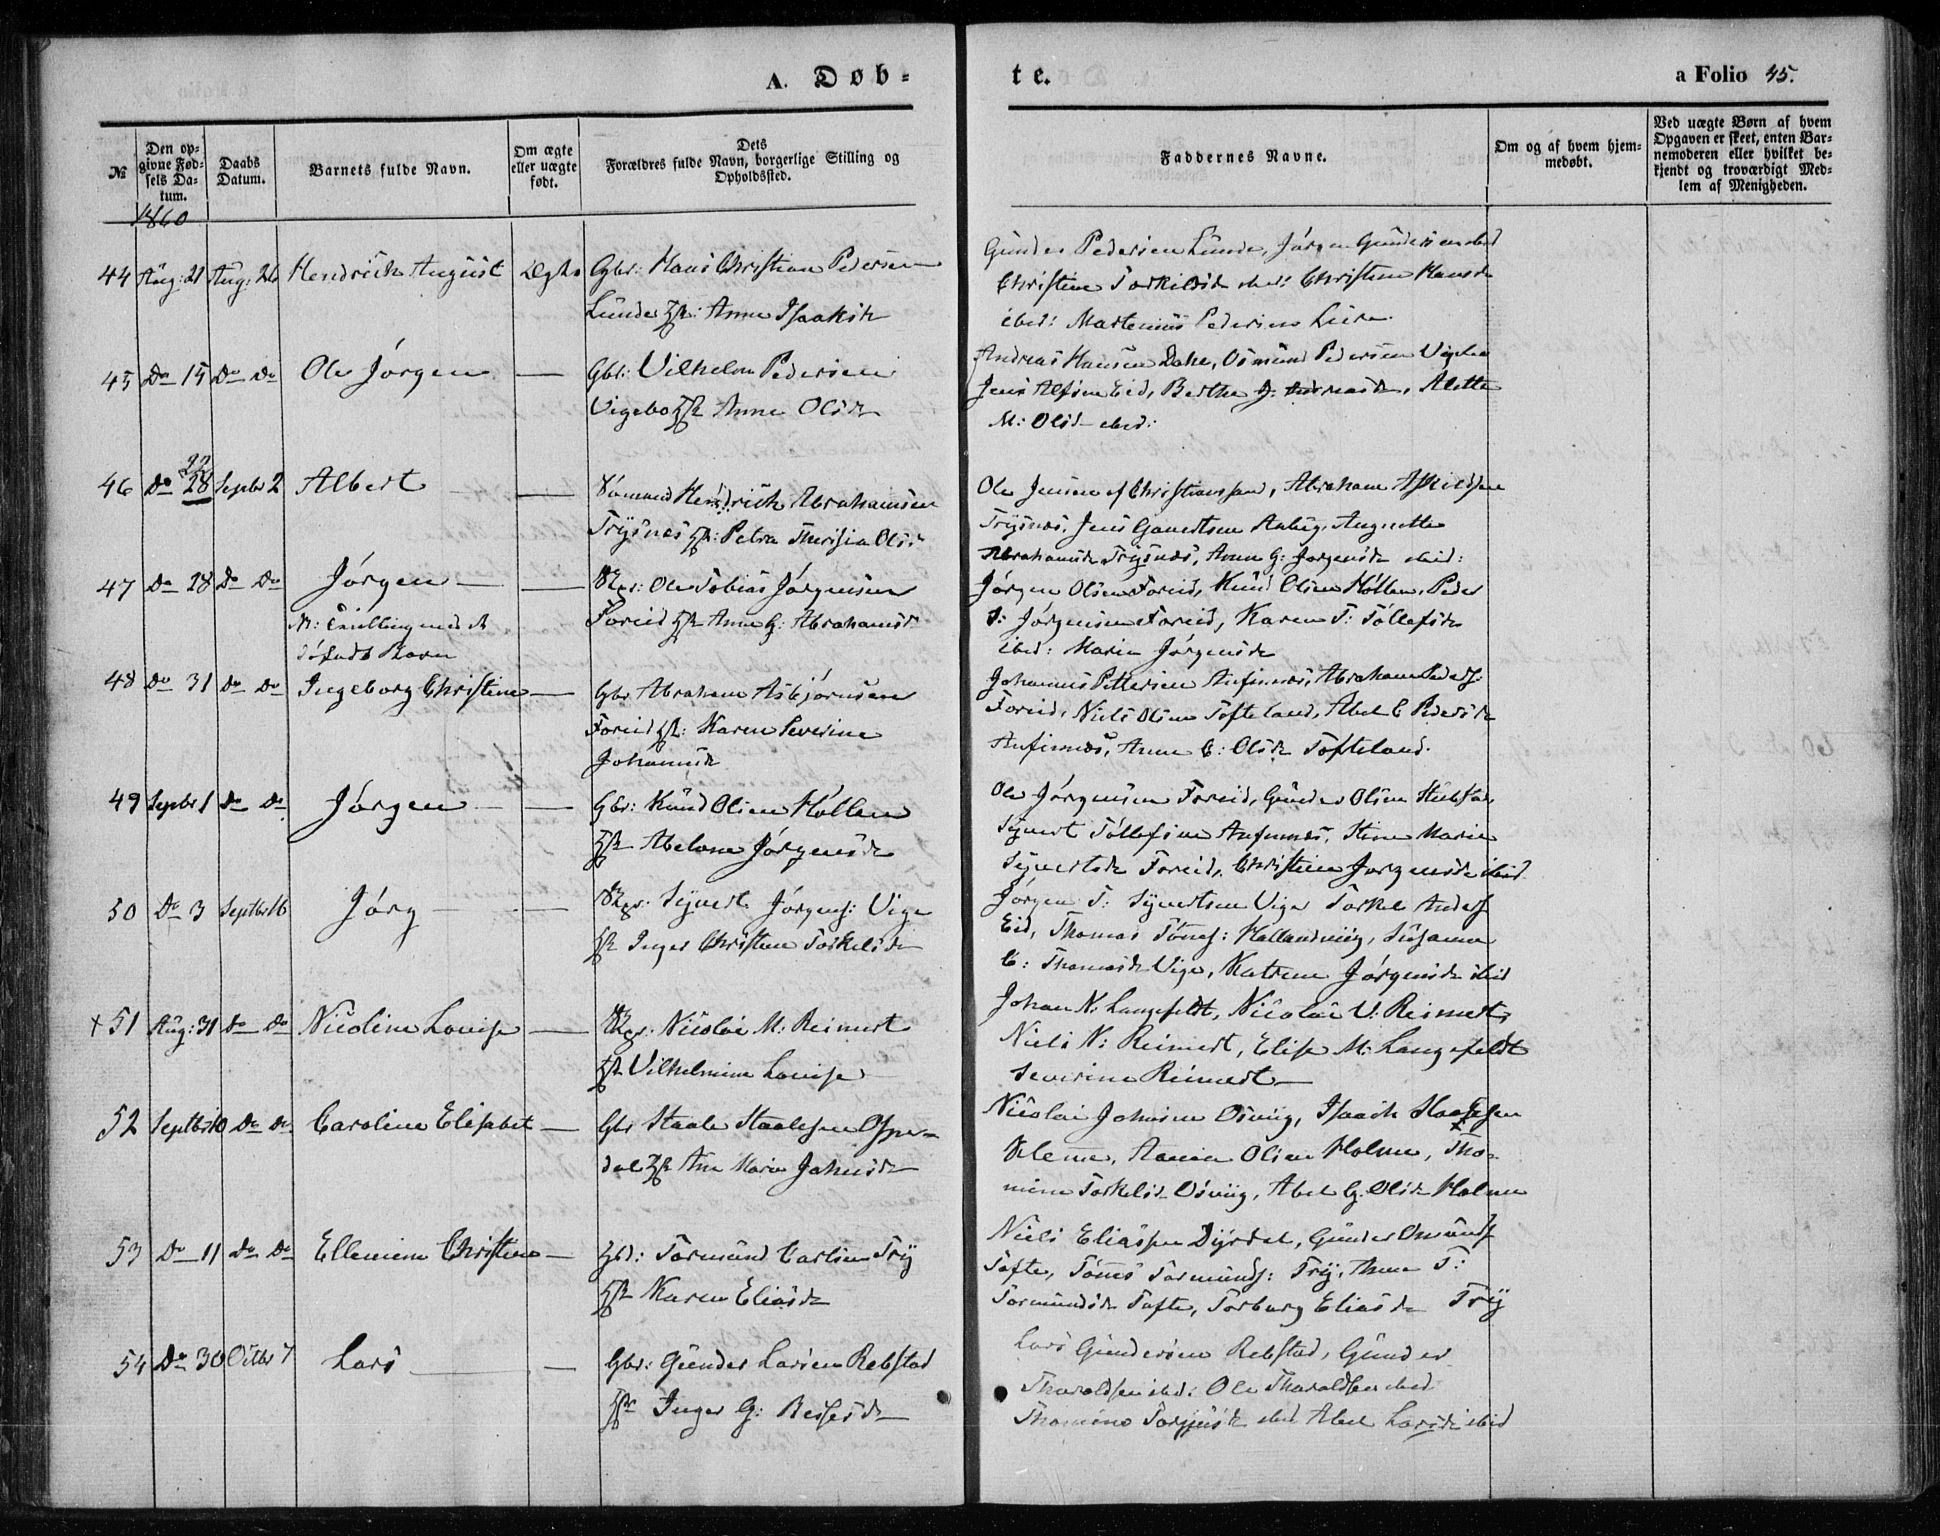 A. Døb-
te.
a Folio 45.
№
Den op-
givne Fød-
sels Da-
tum.
Daabs
Datum.
Barnets fulde Navn.
Om ægte
eller uægte
født.
Dets
Forældres fulde Navn, borgerlige Stilling og
Opholdssted.
Faddernes Navne.
Om og af hvem hjem-
medøbt.
Ved uægte Børn af hvem
Opgaven er skeet, enten Bar-
nemoderen eller hvilket be-
kjendt og troværdigt Med-
lem af Menigheden.
1860
44 Aug: 21 Aug: 26 Hendrich August Ægte Gbr: Hans Christian Pedersen
Lunde Hst: Anne Isaaksdr
Gunder Pedersen Lunde, Jørgen Gundersen ibid
Christine Torkildsdr ibid: Christine Hansdr
ibid: Martenius Pedersen
45 Do 15 Do Do Ole Jørgen — Gbr: Vilhelm Pedersen
Vigebo Hst Anne Olsdr
Andreas Hansen Dahe, Osmund Pedersen
Jens Alfsen Eid, Berthe Alette
M: Olsd ibid:
46 Do 22
28 Septbr 2 Albert — Hendrich Abrahamsen
Trysnes Hst: Petra Olsd
Ole Jensen af Christianssand, Abraham Askildsen
Trysnes, Jens Augnette
Abrahamsdr Trysnes, Anne G: Jørgensdr ibid:
47 Do 28 Do Do Jørgen — Ole Tobias Jørgensen
Foreid Hst Anne G: Abrahamsd
N: Tvillingen
dødfødt Barn
Jørgen Olsen Foreid, Knud Olsen Høllen, Peder
Jørgensen Foreid, Karen T: Tøllefsdr
ibid: Marie Jørgensdr
48 Do 31 Do Do Ingeborg Christine — Gbr Abraham Asbjørnsen
Foreid Hst: Karen Severine
Johannsdr
Johannes Pettersen Anfinnes, Abraham Peders:
Foreid, Niels Olsen Tofteland, Abel C Pedersdr
Anfinnes, Anne C: Olsdr Tofteland.
49 Septbr 1 Do Do Jørgen — Gbr: Knud Olsen Høllen
Hst Abelone Jørgensdr
Ole Jørgensen Foreid, Gunder Olsen
Syvert Tøllefsen Anfinnes, Stine Marie
Syvertsdr Foreid, Christine Jørgensdr ibid
50 Do 3 Septbr 16 Jørg — Syvert Jørgens: Vige
Hst Inger Christine Torkelsdr
Jørgen T: Syvertsen Vige Torkel Anders
Eid, Thomas Tønnes: Hallandsvig, Susanne
C: Thomasdr Vige, Katrine Jørgensdr ibid
+ 51 Aug: 31 Do Do Nicoline Louise — Nicolai M: Reimert
Hst Vilhelmine Louise
Johan N: Langefeldt, Nicolai V: Reimert,
Niels N: Reimert, Elise M: Langefeldt
Severine Reimert
52 Septbr 10 Do Do Caroline Elisabet — Gbr Staale Staalesen Ospe-
dal Hst Ane Marie Jahnsdr
Nicolai Johnsen Osvig, Isaach
Olsen Holme, Tho-
mine Torkelsd Osvig, Abel G. Olsdr Holme
53 Do 11 Do Do Ellenine Christine — Tormund Carlsen Try
Hst Karen Eliasdr
Niels Eliassen Dyrdal, Gunder Omunds
Tofte, Tønnes Tormunds: Try, Anne T:
Tormundsdr Tofte, Torborg Eliasdr Try
54 Do 30 Octbr 7 Lars — Gbr: Gunder Larsen Rebstad
Hst Inger G:
Lars Gundersen Rebstad, Gunder
Tharaldsen ibid: Ole Tharaldsen ibid
Thomine Torjusdr ibid Abel Larsdr ibid